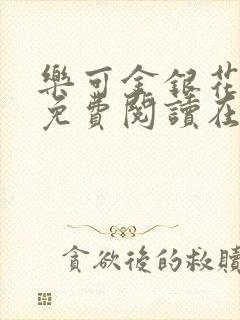 樂可金銀花
免費閱讀在
貪欲後的救贖